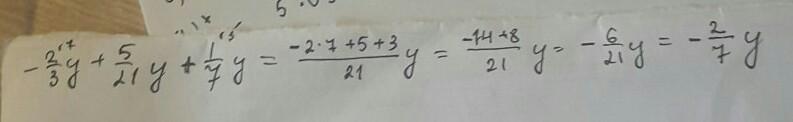 -\frac{2^{\backslash 7}}{3}y + \frac{5}{21}y + \frac{1^{\backslash 3}}{7}y = \frac{-2 \cdot 7 + 5 + 3}{21}y = \frac{-14 + 8}{21}y = -\frac{6}{21}y = -\frac{2}{7}y